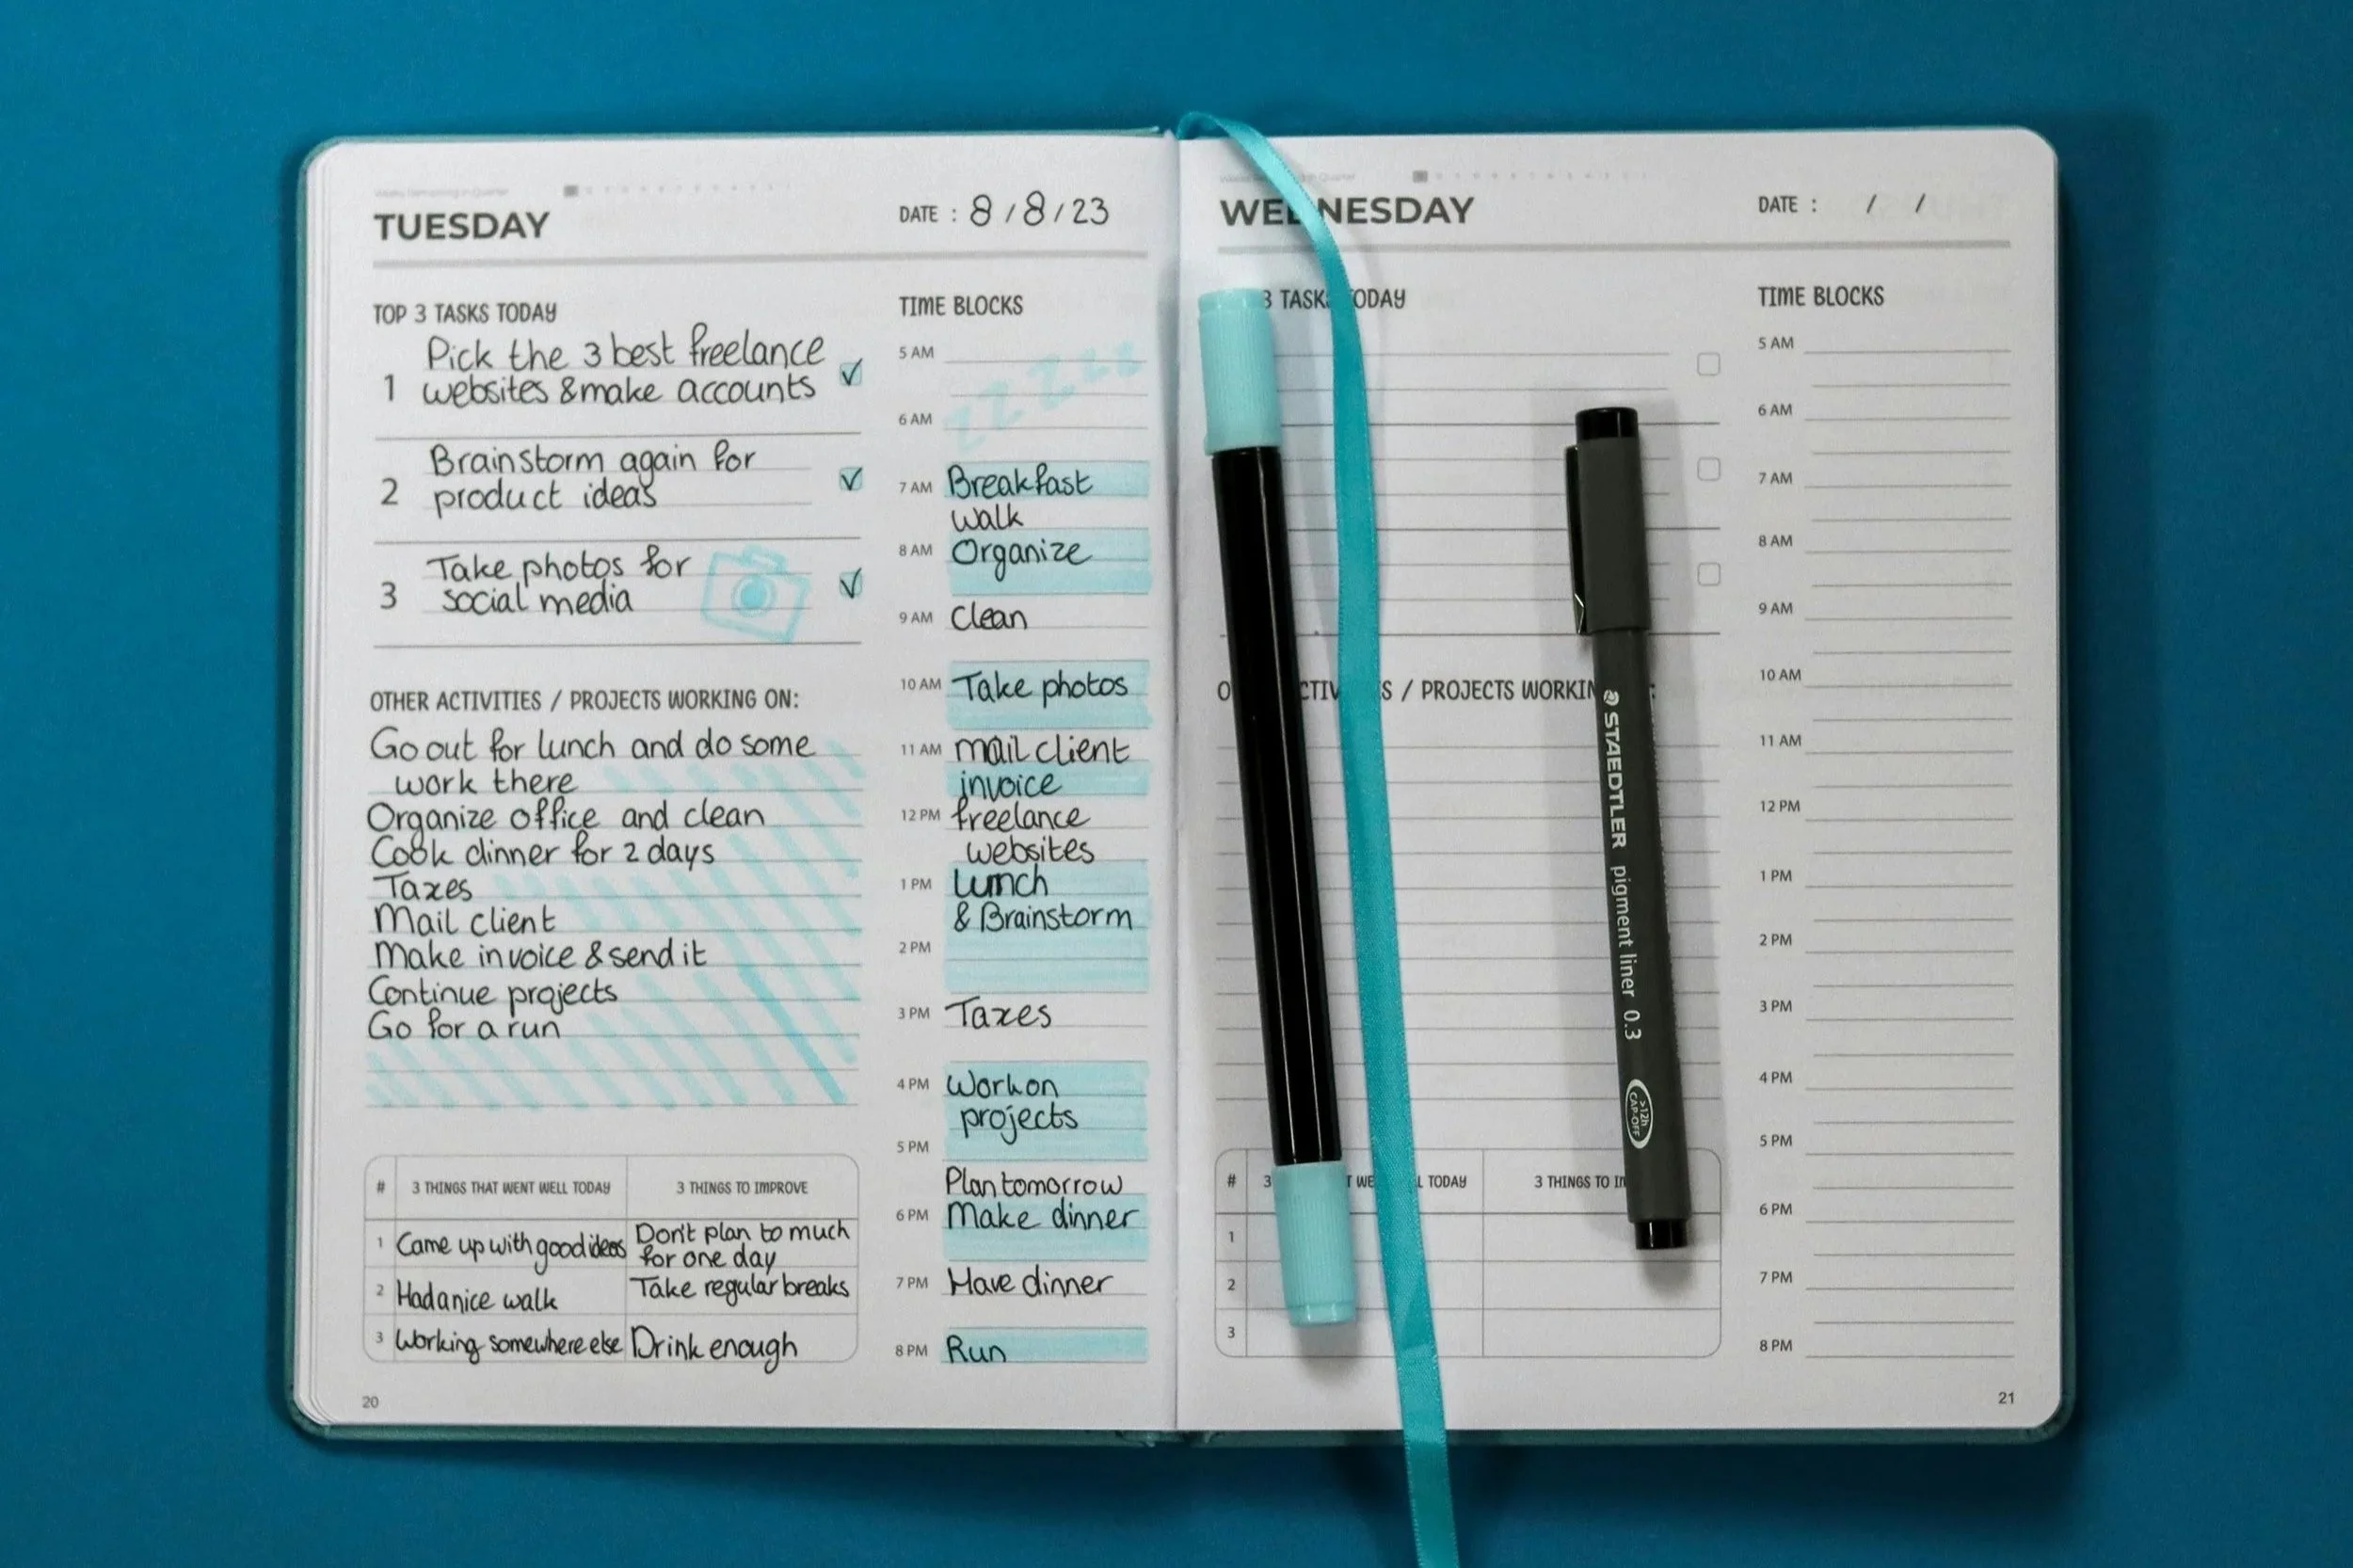 TUESDAY
DATE : 8/8/23
TOP 3 TASKS TODAY
1 Pick the 3 best freelance
websites & make accounts
2 Brainstorm again for
product ideas
3 Take photos for
social media
OTHER ACTIVITIES / PROJECTS WORKING ON:
Go out for lunch and do some
work there
Organize office and clean
Cook dinner for 2 days
Taxes
Mail client
Make invoice & send it
Continue projects
Go for a run
# 3 THINGS THAT WENT WELL TODAY 3 THINGS TO IMPROVE
1 Came up with good ideas Don't plan to much
for one day
2 Had a nice walk Take regular breaks
3 Working somewhere else Drink enough
20
TIME BLOCKS
5 AM zzZzzz
6 AM
7 AM Breakfast
walk
8 AM Organize
9 AM Clean
10 AM Take photos
11 AM mail client
invoice
12 PM freelance
websites
1 PM Lunch
& Brainstorm
2 PM
3 PM Taxes
4 PM Work on
projects
5 PM
Plan tomorrow
6 PM Make dinner
7 PM Have dinner
8 PM Run
WEDNESDAY
DATE : / /
3 TASKS TODAY
/ PROJECTS WORKIN
# 3 TODAY 3 THINGS TO
1
2
3
STAEDTLER pigment liner 0.3
>12h
CAP-OFF
TIME BLOCKS
5 AM
6 AM
7 AM
8 AM
9 AM
10 AM
11 AM
12 PM
1 PM
2 PM
3 PM
4 PM
5 PM
6 PM
7 PM
8 PM
21